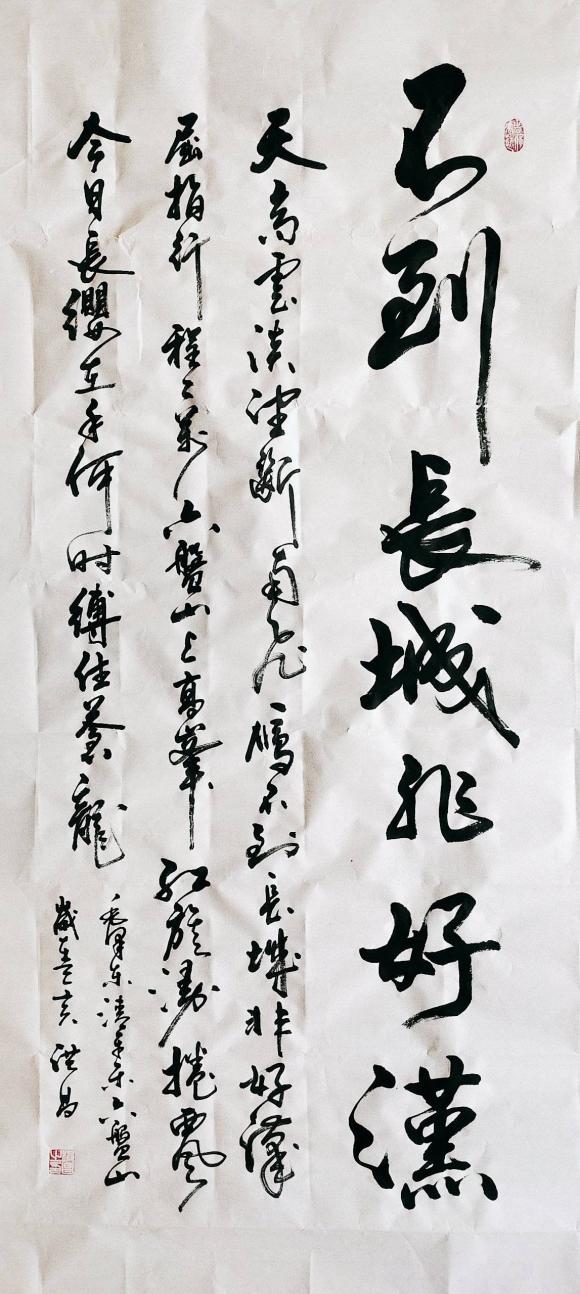 不到長城非好漢
天高雲淡望斷南飛雁不到長城非好漢
屈指行程二萬六盤山上高峯紅旗漫捲西風
今日長纓在手何時縛住蒼龍
毛澤東清平樂六盤山
歲洪昌